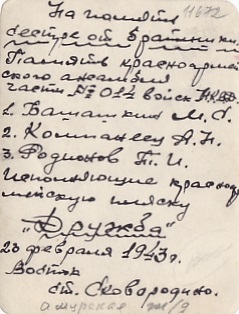 11672
На память
сестре от братишки.
Память красноармей
ского ансамбля
части № 014 войск НКВД
1. Баташкин М. С.
2. Компанеец А. Н.
3. Родионов Т. И.
Исполняющие красноар
мейскую пляску
"Дружба"
23 февраля 1943 г.
Восток
ст. Сковородино.
амурская ж/д